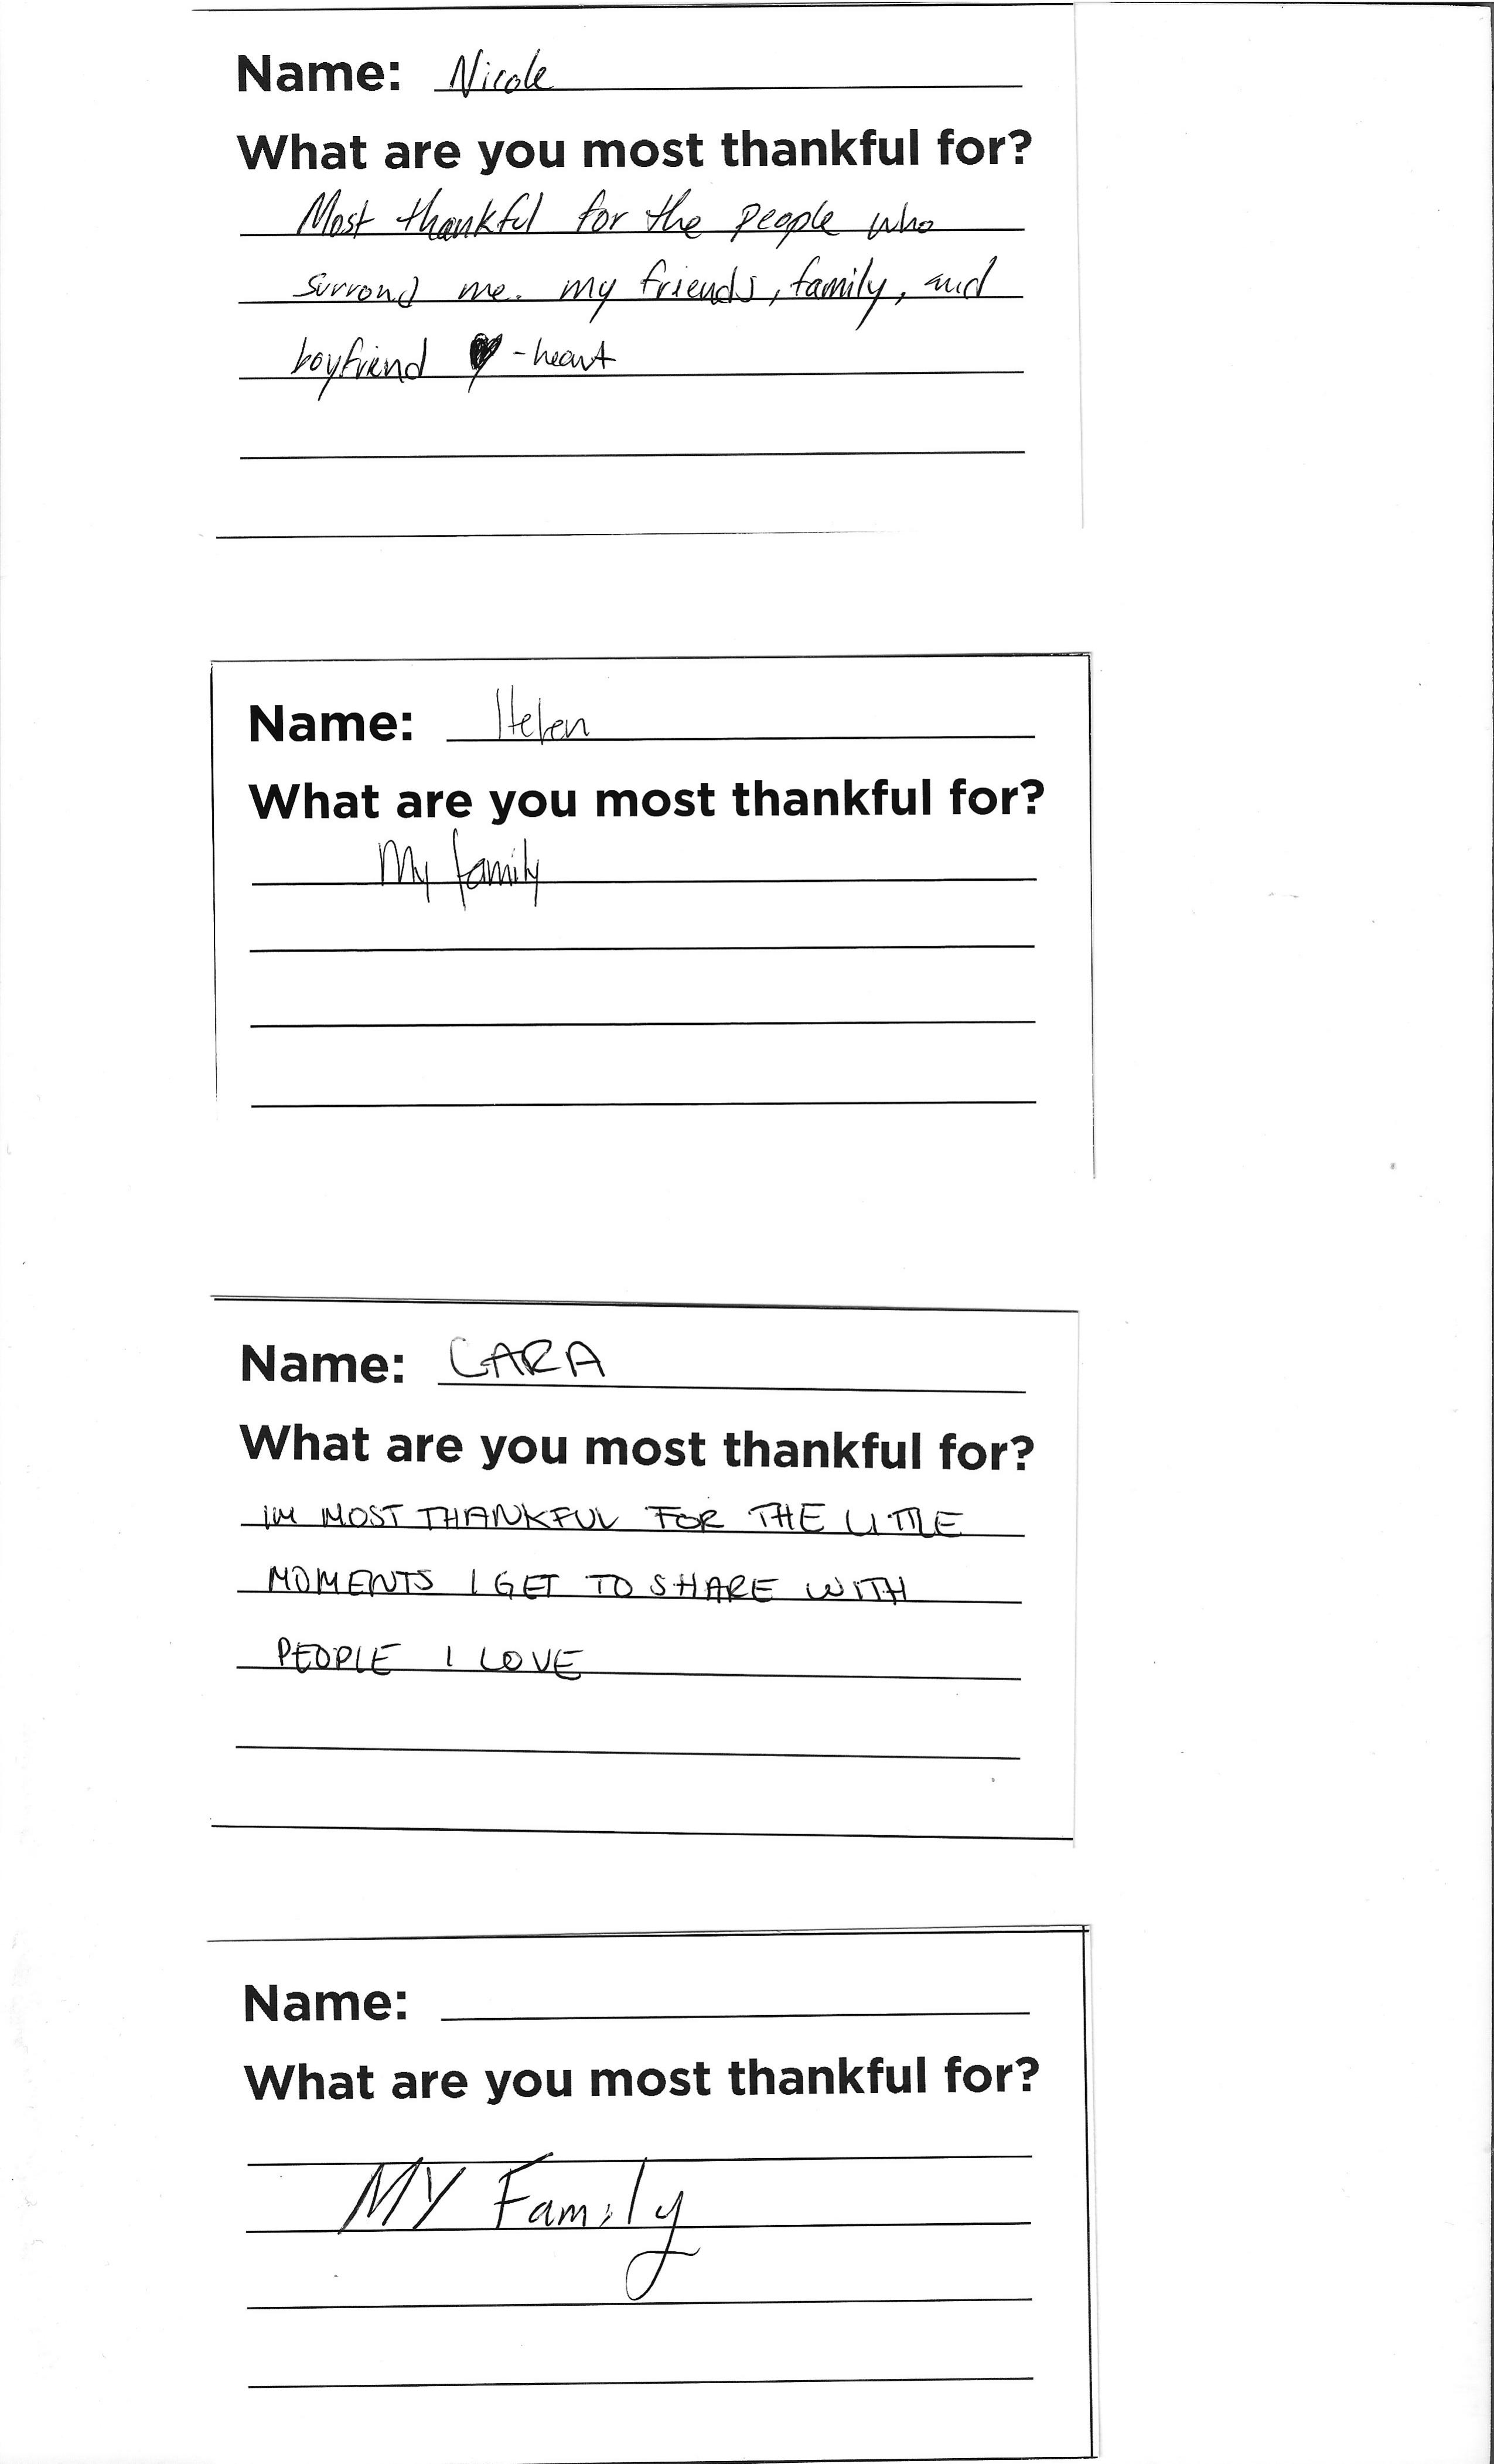 Name: Nicole
What are you most thankful for?
Most thankful for the people who
surrond me. my friends, family, and
boyfriend ♥ -heart
Name: Helen
What are you most thankful for?
My family
Name: CARA
What are you most thankful for?
IM MOST THANKFUL FOR THE LITTLE
MOMENTS I GET TO SHARE WITH
PEOPLE I LOVE
Name:
What are you most thankful for?
MY Family